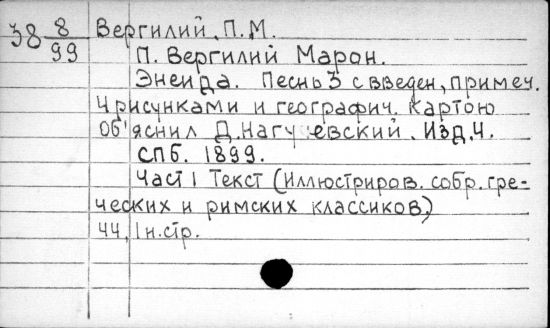 38 8/99 Вергилий, П.М.
П. Вергилий Марон.
Энеида. Песнь 3 с введен, примеч.
4 рисунками и географич. картою
Об'яснил Д. Нагуевский. Изд. 4.
СПб. 1899.
Част 1 Текст (Иллюстриров. собр. гре-
ческих и римских классиков)
44, 1 н. стр.